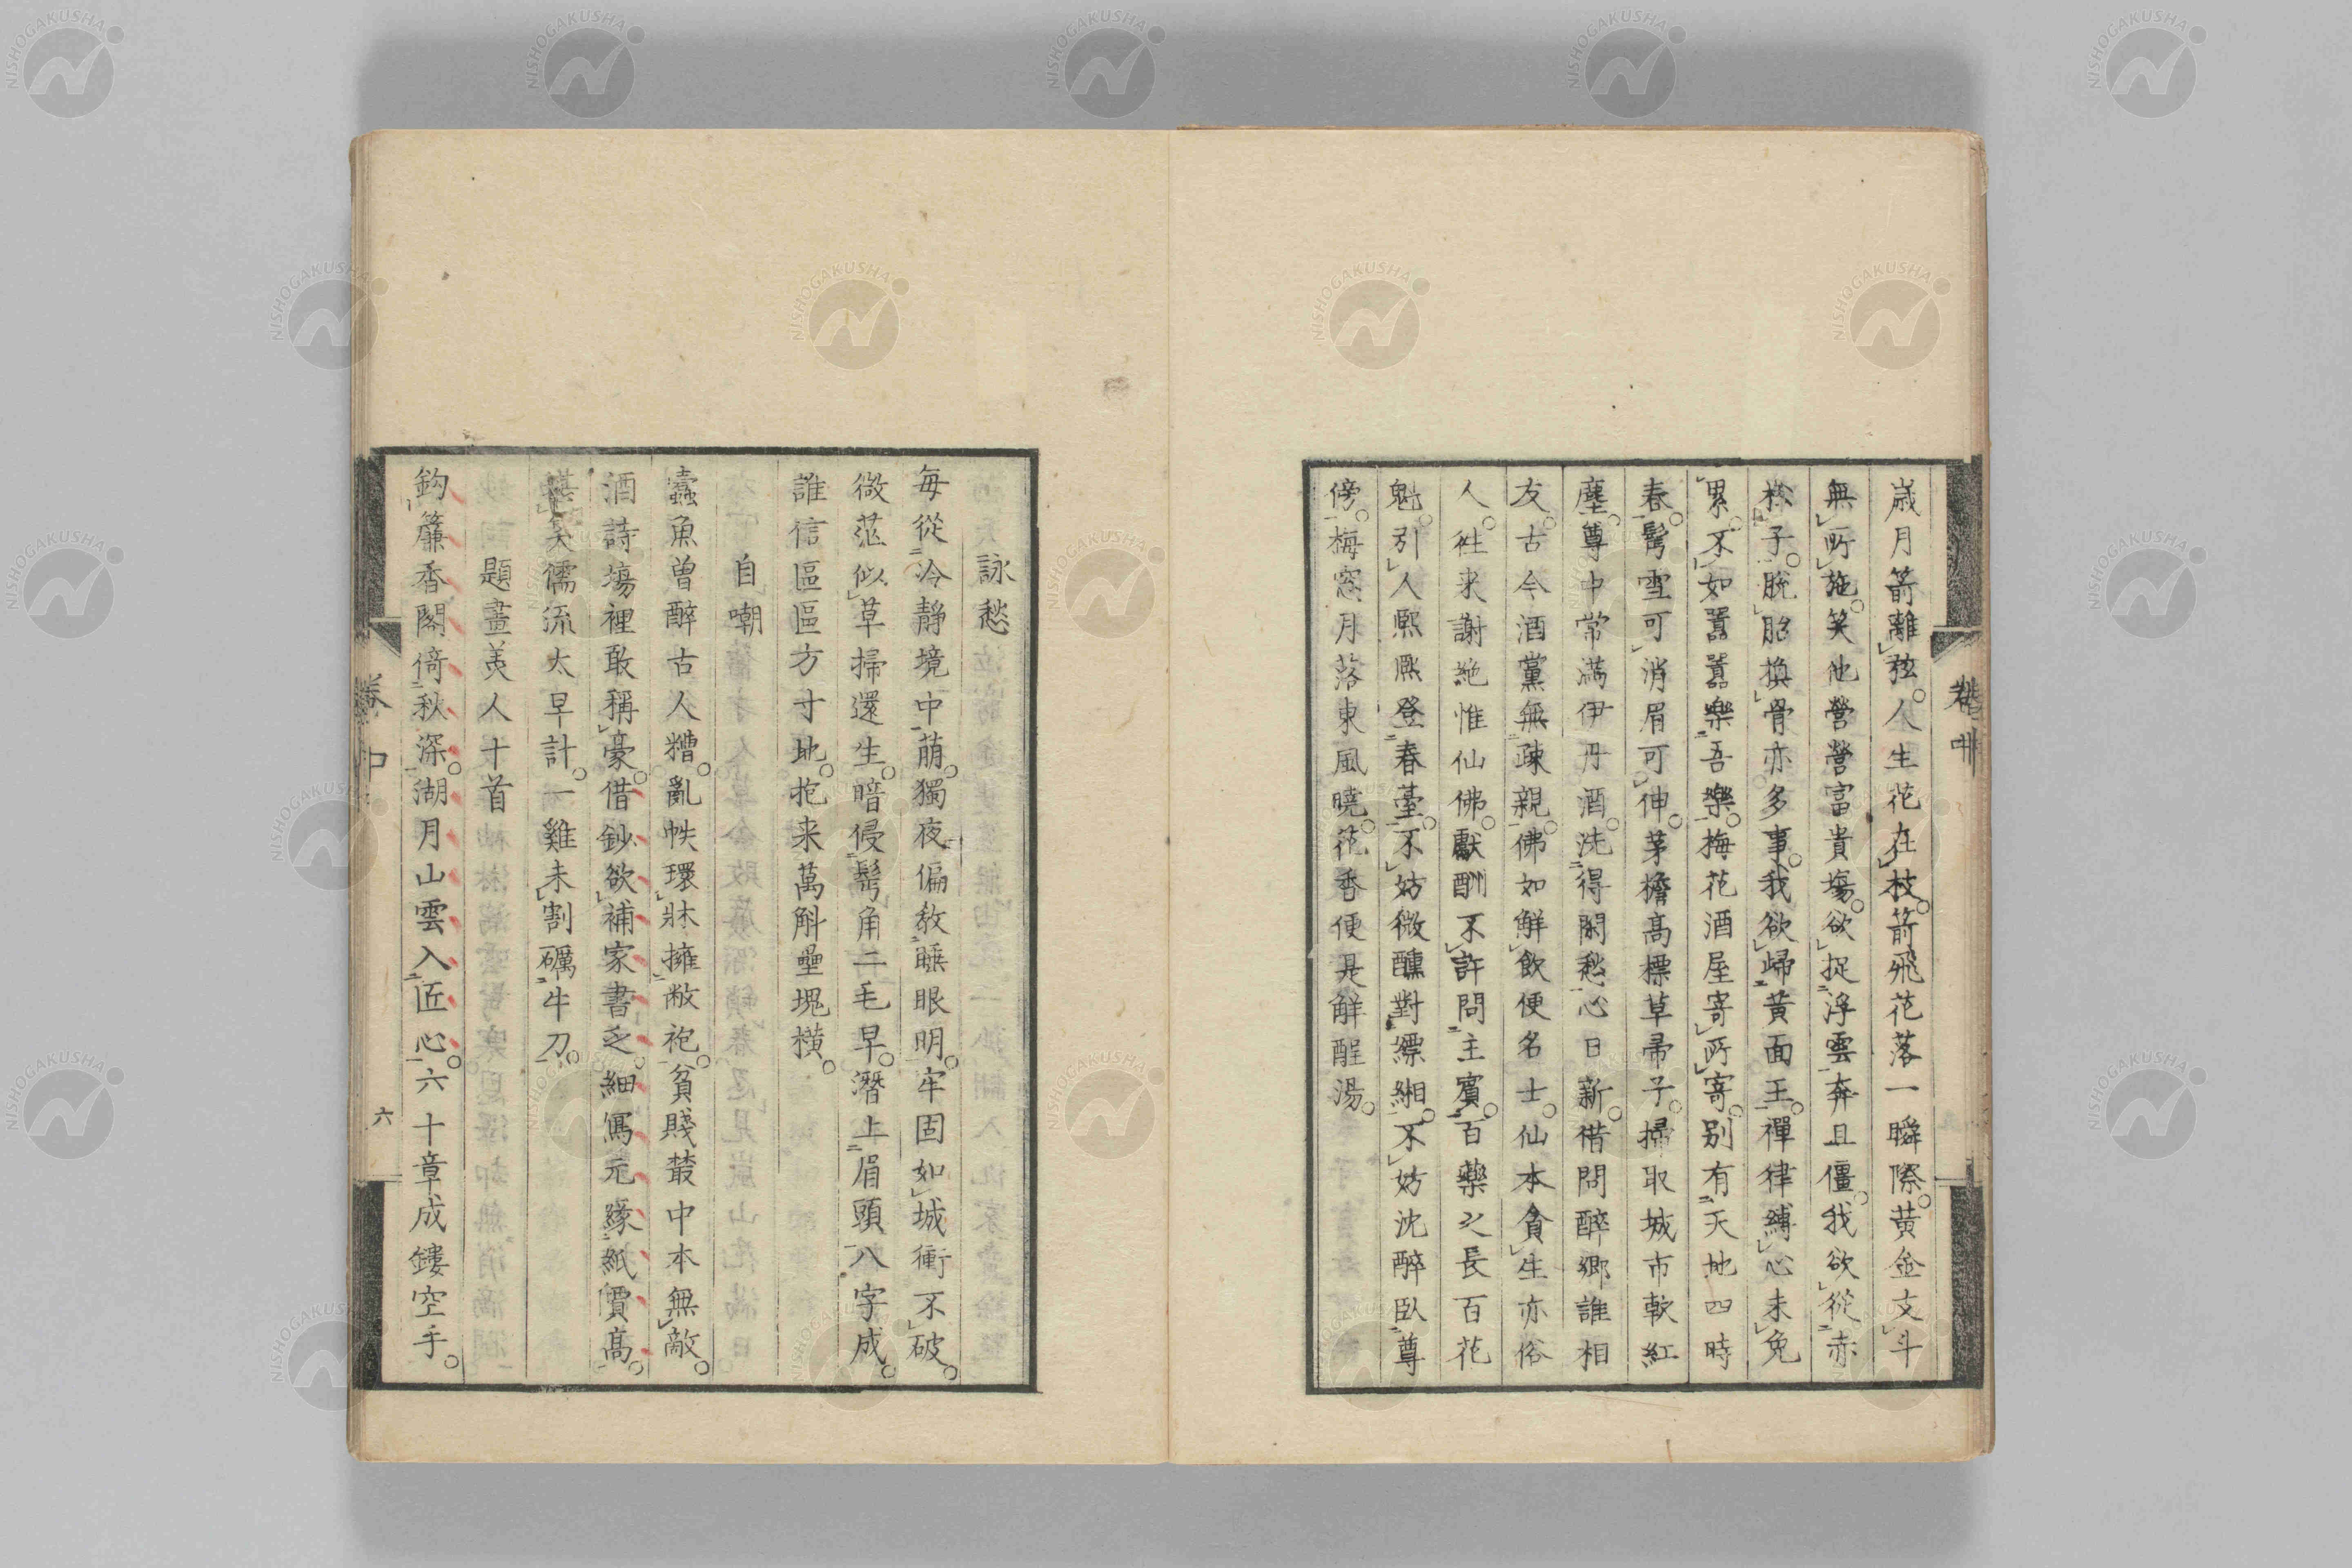 歳月箭離弦。人生花在枝。箭飛花落一瞬際。黄金文斗
無所施。笑他營營富貴場。欲捉浮雲奔且僵。我欲從赤
松子。脱胎換骨亦多事。我欲歸黄面王。禪律縛心未免
累。不如囂囂樂吾樂。梅花酒屋寄所寄。别有天地四時
春。鬢雪可消眉可伸。茅檐高標草帚子。掃取城市軟紅
塵。尊中常満伊丹酒。洗得閑愁心日新。借問醉郷誰相
友。古今酒黨無疎親。佛如解飲便名士。仙本貪生亦俗
人。徃来謝絶惟仙佛。獻酬不許問主賓。百藥之長百花
魁。引人熈熈登春臺。不妨微醺對縹緗。不妨沈醉臥尊
傍。梅窓月落東風暁。花香便是解酲湯。
詠愁
毎從冷静境中萠。獨夜偏教睡眼明。牢固如城衝不破。
微茫似草掃還生。暗侵鬢角二毛早。潛上眉頭八字成。
誰信區區方寸地。抱来萬斛壘塊横。
自嘲
蠧魚曽醉古人糟。亂帙環牀擁敝袍。貧賤叢中本無敵。
酒詩場裡敢稱豪。借鈔欲補家書乏。細寫元緣紙價髙。
堪笑儒流太早計。一雞未割礪牛刀。
題畫美人十首
鈎簾香閣倚秋深。湖月山雲入匠心。六十章成鏤空手。
卷中
六